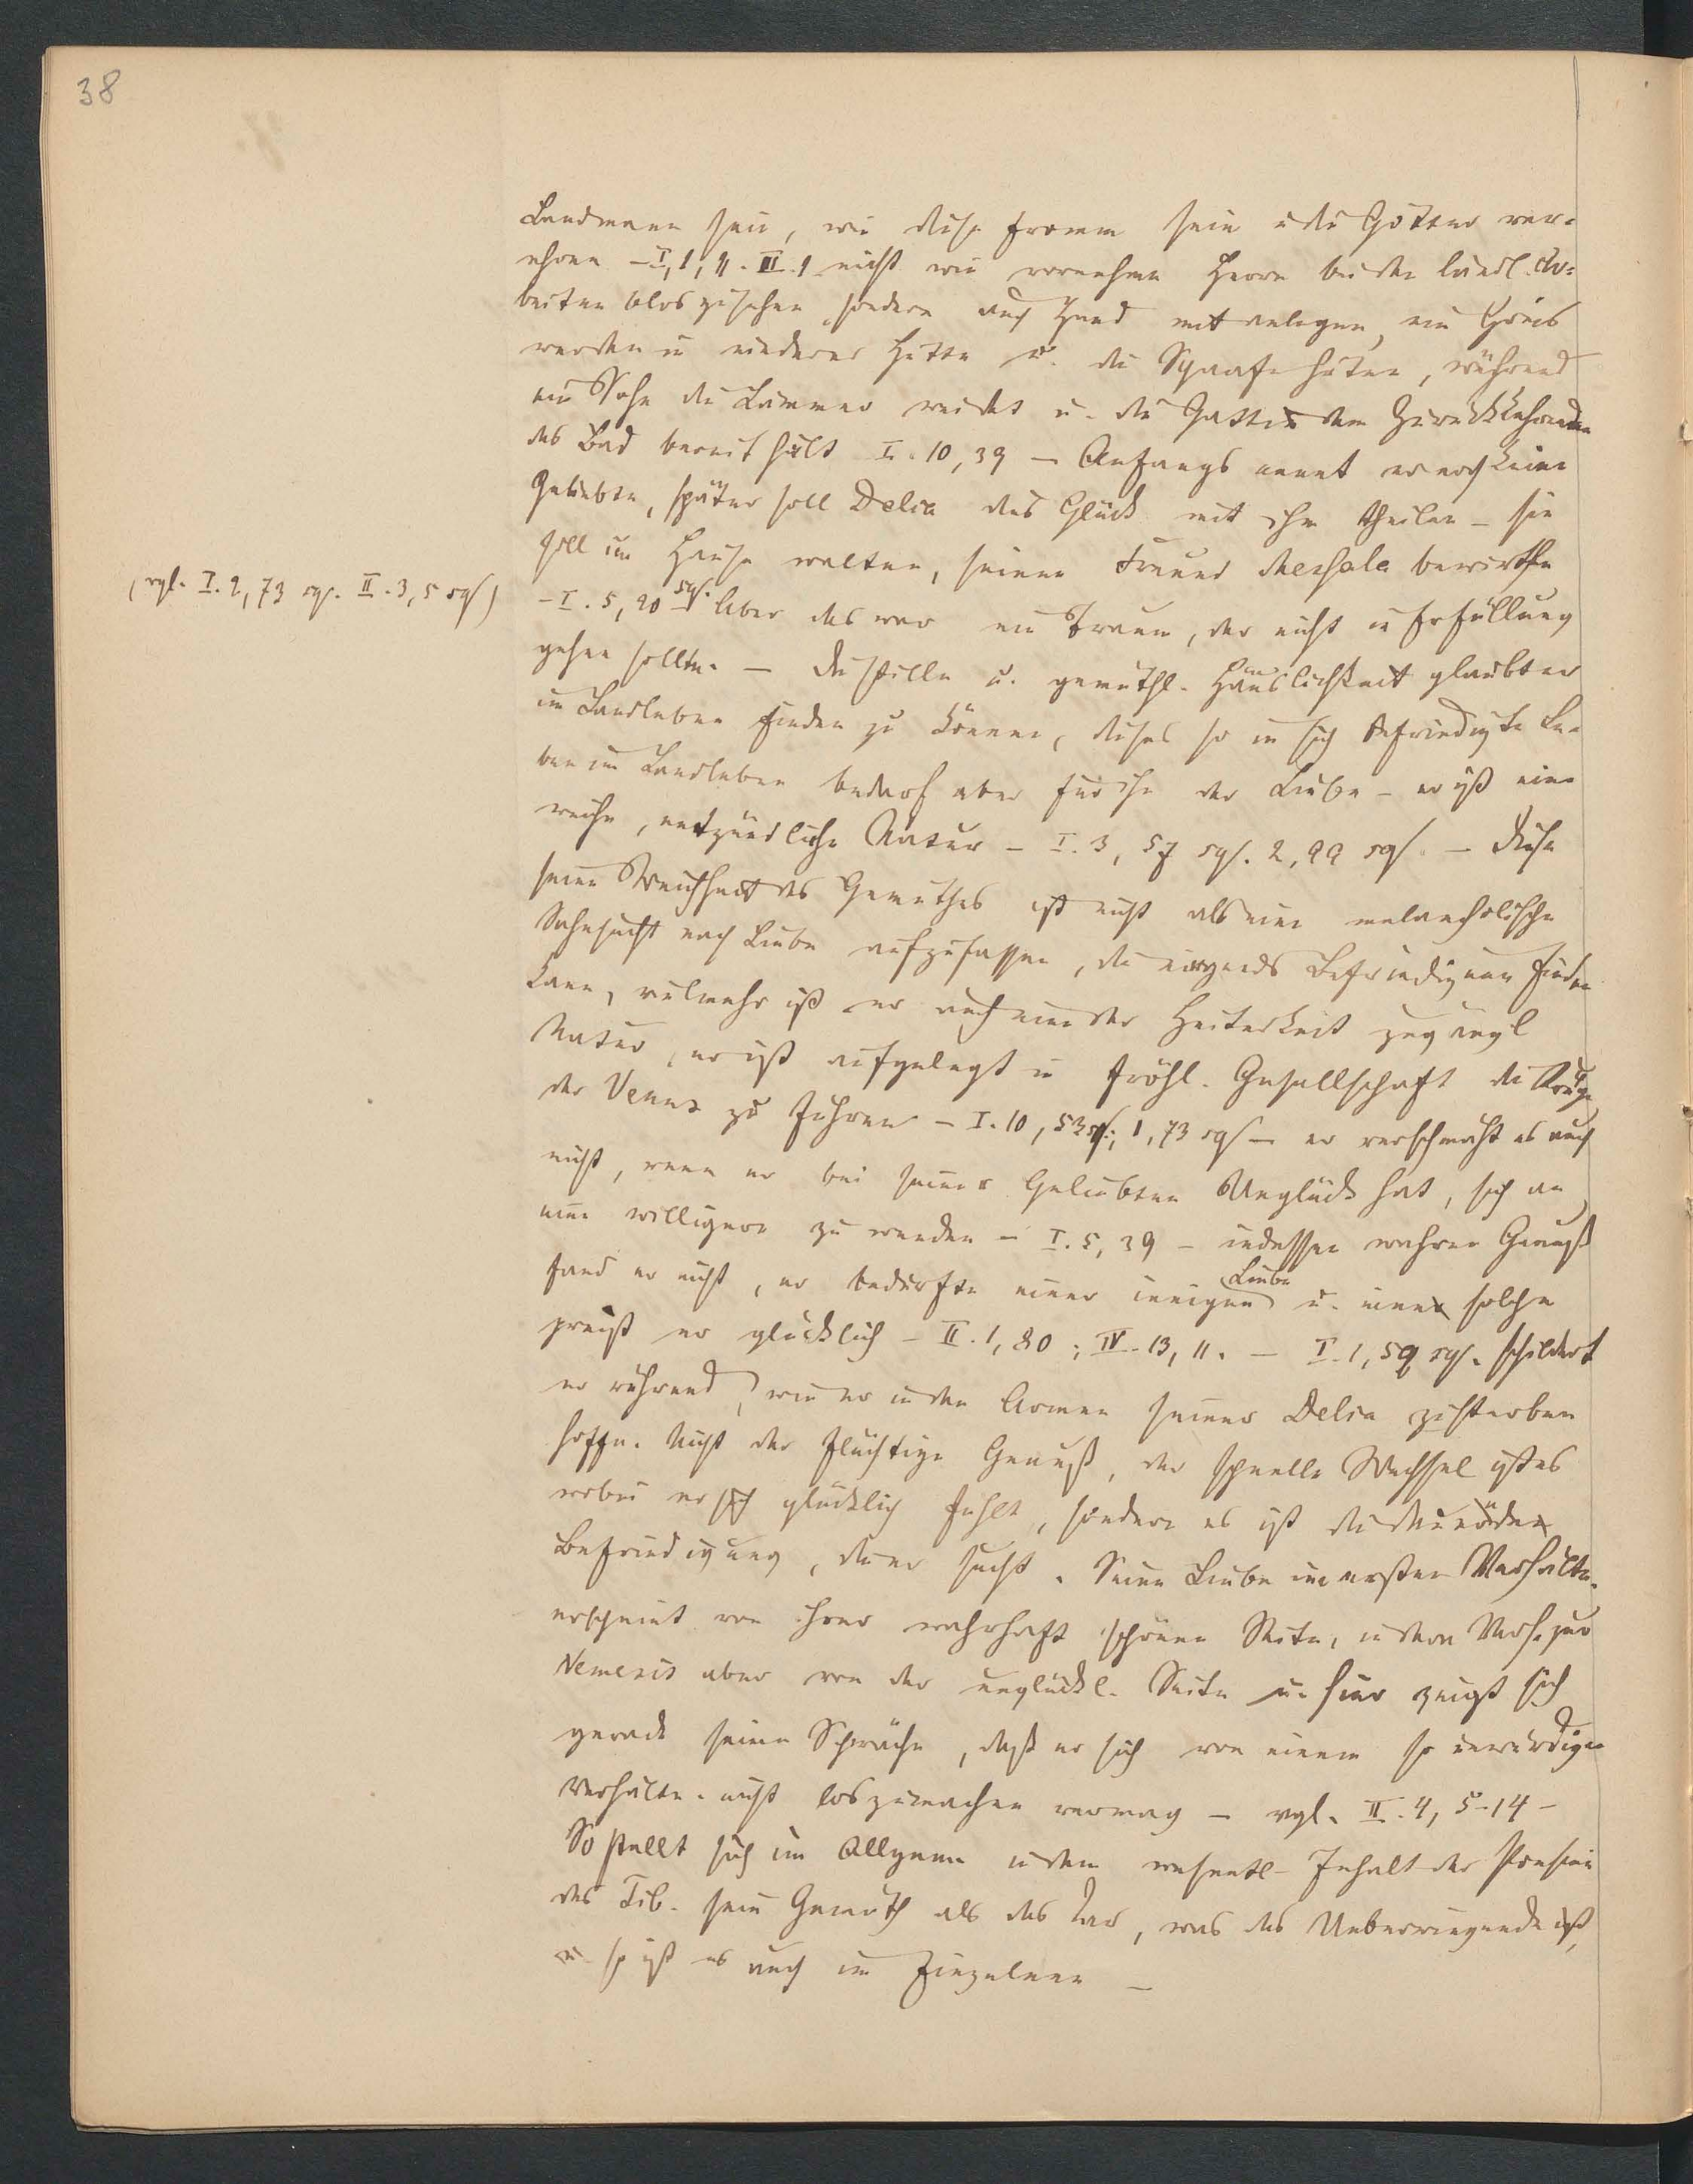 38
Landmann sein, wie diese fromm sein u die Götter ver-
ehren – I, 1, 11. II. 1 nicht wie vornehme Herrn bei den ländl. Ar-
beiten blos zusehen sondern auch Hand mit anlegen, ein Greis
werden in niederer Hütte u. die Schaafe hüten, während
ein Sohn die Lämmer weidet u. die Gattin dem Zurückkehrenden
das Bad bereit hält I. 10, 39 – Anfangs nennt er noch keine
Geliebte, später soll Delia das Glück mit ihm theilen – sie
soll im Hause walten, seinen Freund Messala bewirthen
(vgl. I. 2, 73 sqs. II. 3, 5 sqs)
– I. 5, 20 sqs. Aber das war ein Traum, der nicht in Erfüllung
gehen sollte. – Die stille u. gemüthl. Häuslichkeit glaubt er
im Landleben finden zu können, dieses so in sich befriedigte Le-
ben im Landleben bedarf aber für ihn der Liebe – er ist eine
weiche, entzündliche Natur – I. 3, 57 sqs. 2, 99 sqs. – Diese
seine Weichheit des Gemüthes ist nicht als eine melancholische
Sehnsucht nach Liebe aufzufassen, die nirgends Befriedigung finden
kann, vielmehr ist er auch eine der Heiterkeit zugängl
Natur, er ist aufgelegt in fröhl. Gesellschaft die Kriege
der Venus zu führen – I. 10, 53 sqs.; 1, 73 sqs – er verschmäht es auch
nicht, wenn er bei seiner Geliebten Unglück hat, sich an
eine willigere zu wenden – I. 5, 39 – indessen wahren Genuß
fand er nicht, er bedurfte einer innigen Liebe u. eine solche
preist er glücklich – II. 1, 80; IV. 13, 11. – I. 1, 59 sqs. schildert
er rührend, wie er in den Armen seiner Delia zu sterben
hoffe. Nicht der flüchtige Genuß, der schnelle Wechsel ist es
wobei er sich glücklich fühlt, sondern es ist die
Befriedigung, die er sucht. Seine Liebe im ersten Verhältn.
erscheint von ihrer wahrhaft schönen Seite, in dem Verh. zur
Nemesis aber von der unglückl. Seite u. hier zeigt sich
gerade seine Schwäche, daß er sich von einem so unwürdigen
Verhältn. nicht loszumachen vermag – vgl. II. 4, 5-14 –
So stellt sich im Allgemn in dem wesentl. Inhalt der Poesien
des Tib. sein Gemüth als das dar, was das Ueberwiegende ist,
u. so ist es auch im Einzelnen –